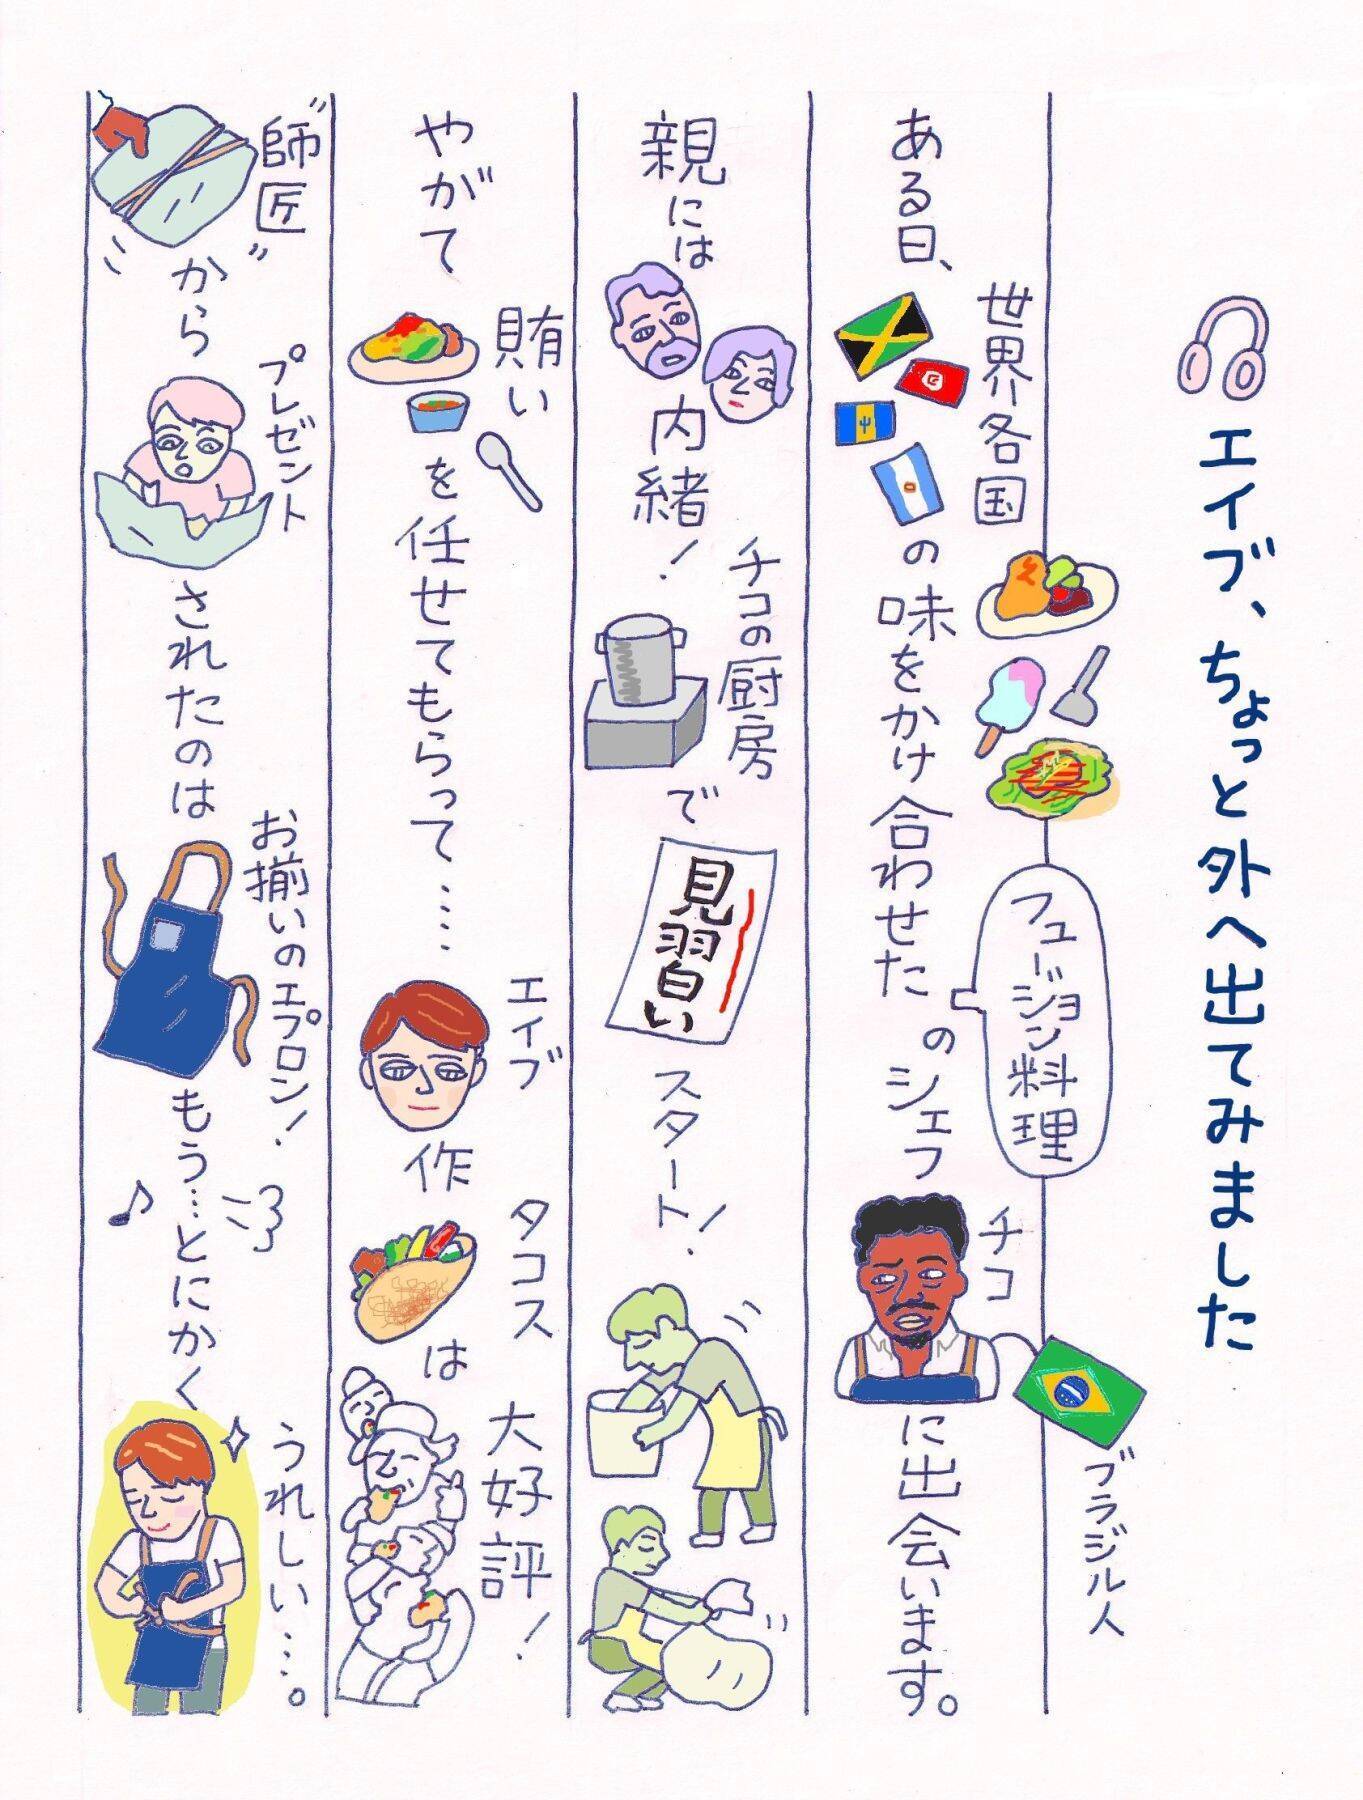 エイブ、ちょっと外へ出てみました
ある日、世界各国の味をかけ合わせたフュージョン料理のシェフチコに出会います。
ブラジル人
親には内緒!チコの厨房で見習いスタート!
やがて賄いを任せてもらって……エイブ作タコスは大好評!
"師匠"からプレゼントされたのはお揃いのエプロン!もう…とにかくうれしい…。